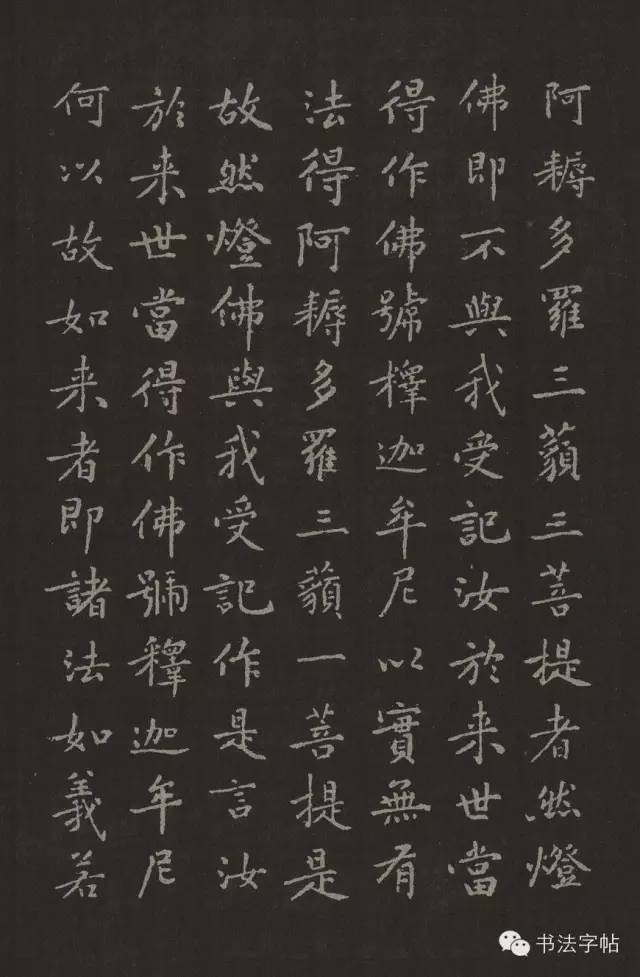 阿耨多羅三藐三菩提者然燈
佛即不與我受記汝於来世當
得作佛號釋迦牟尼以實無有
法得阿耨多羅三藐一菩提是
故然燈佛與我受記作是言汝
於来世當得作佛號釋迦牟尼
何以故如来者即諸法如義若
书法字帖